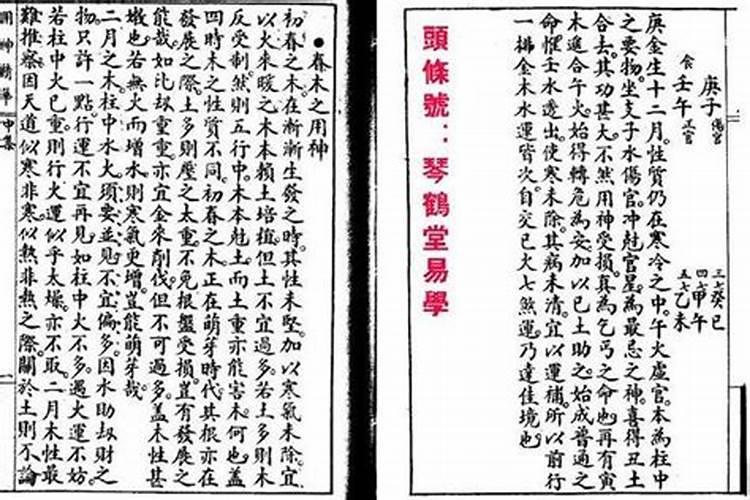 庚子傷官
食壬午正官
三七癸巳
四七甲午
五七乙未
庚金生十二月。性質仍在寒冷之中。午火虛官。本為柱中
之要物。坐支子水傷官。冲尅官星。為最忌之神。喜得丑土
合去。其功甚大。不然用神受損。真為乞丐之命也。再有寅
木進合午火。始得轉危為妥。加以巳土助之。始成普通之
命。惟壬水透出。使寒未除。其病未清。宜以運補。所以前行
一排金木水運皆次。自交巳火七煞運。乃達佳境也。
頭條號：琴鶴堂易學
●春木之用神
初春之木。在漸漸生發之時。其性未堅。加以寒氣未除。宜
以火來暖之。木本賴土培植。但土不宜過多。若土多則木
反受制。然則五行中。木本尅土。而土重亦能害木。何也。蓋
四時木之性質不同。初春之木。正在萌芽時代。其根亦在
發展之際。土多則壓之太重。不免根盤受損。豈有發展之
能哉。如比刼重重。亦宜金來削伐。但不可過多。蓋木性甚
嫩也。若無火而增水。則寒氣更增。豈能萌芽哉。
二月之木。柱中水火。須要並見。不宜偏多。因水助刼財之
物。只許一點。行運不宜再見。如柱中火不多。遇火運不妨。
若柱中火已重。則行火運。似乎太燥。亦不取。二月木性最
難推察。因天道似寒非寒。似熱非熱之際。關於土則不論
用神精華
中集